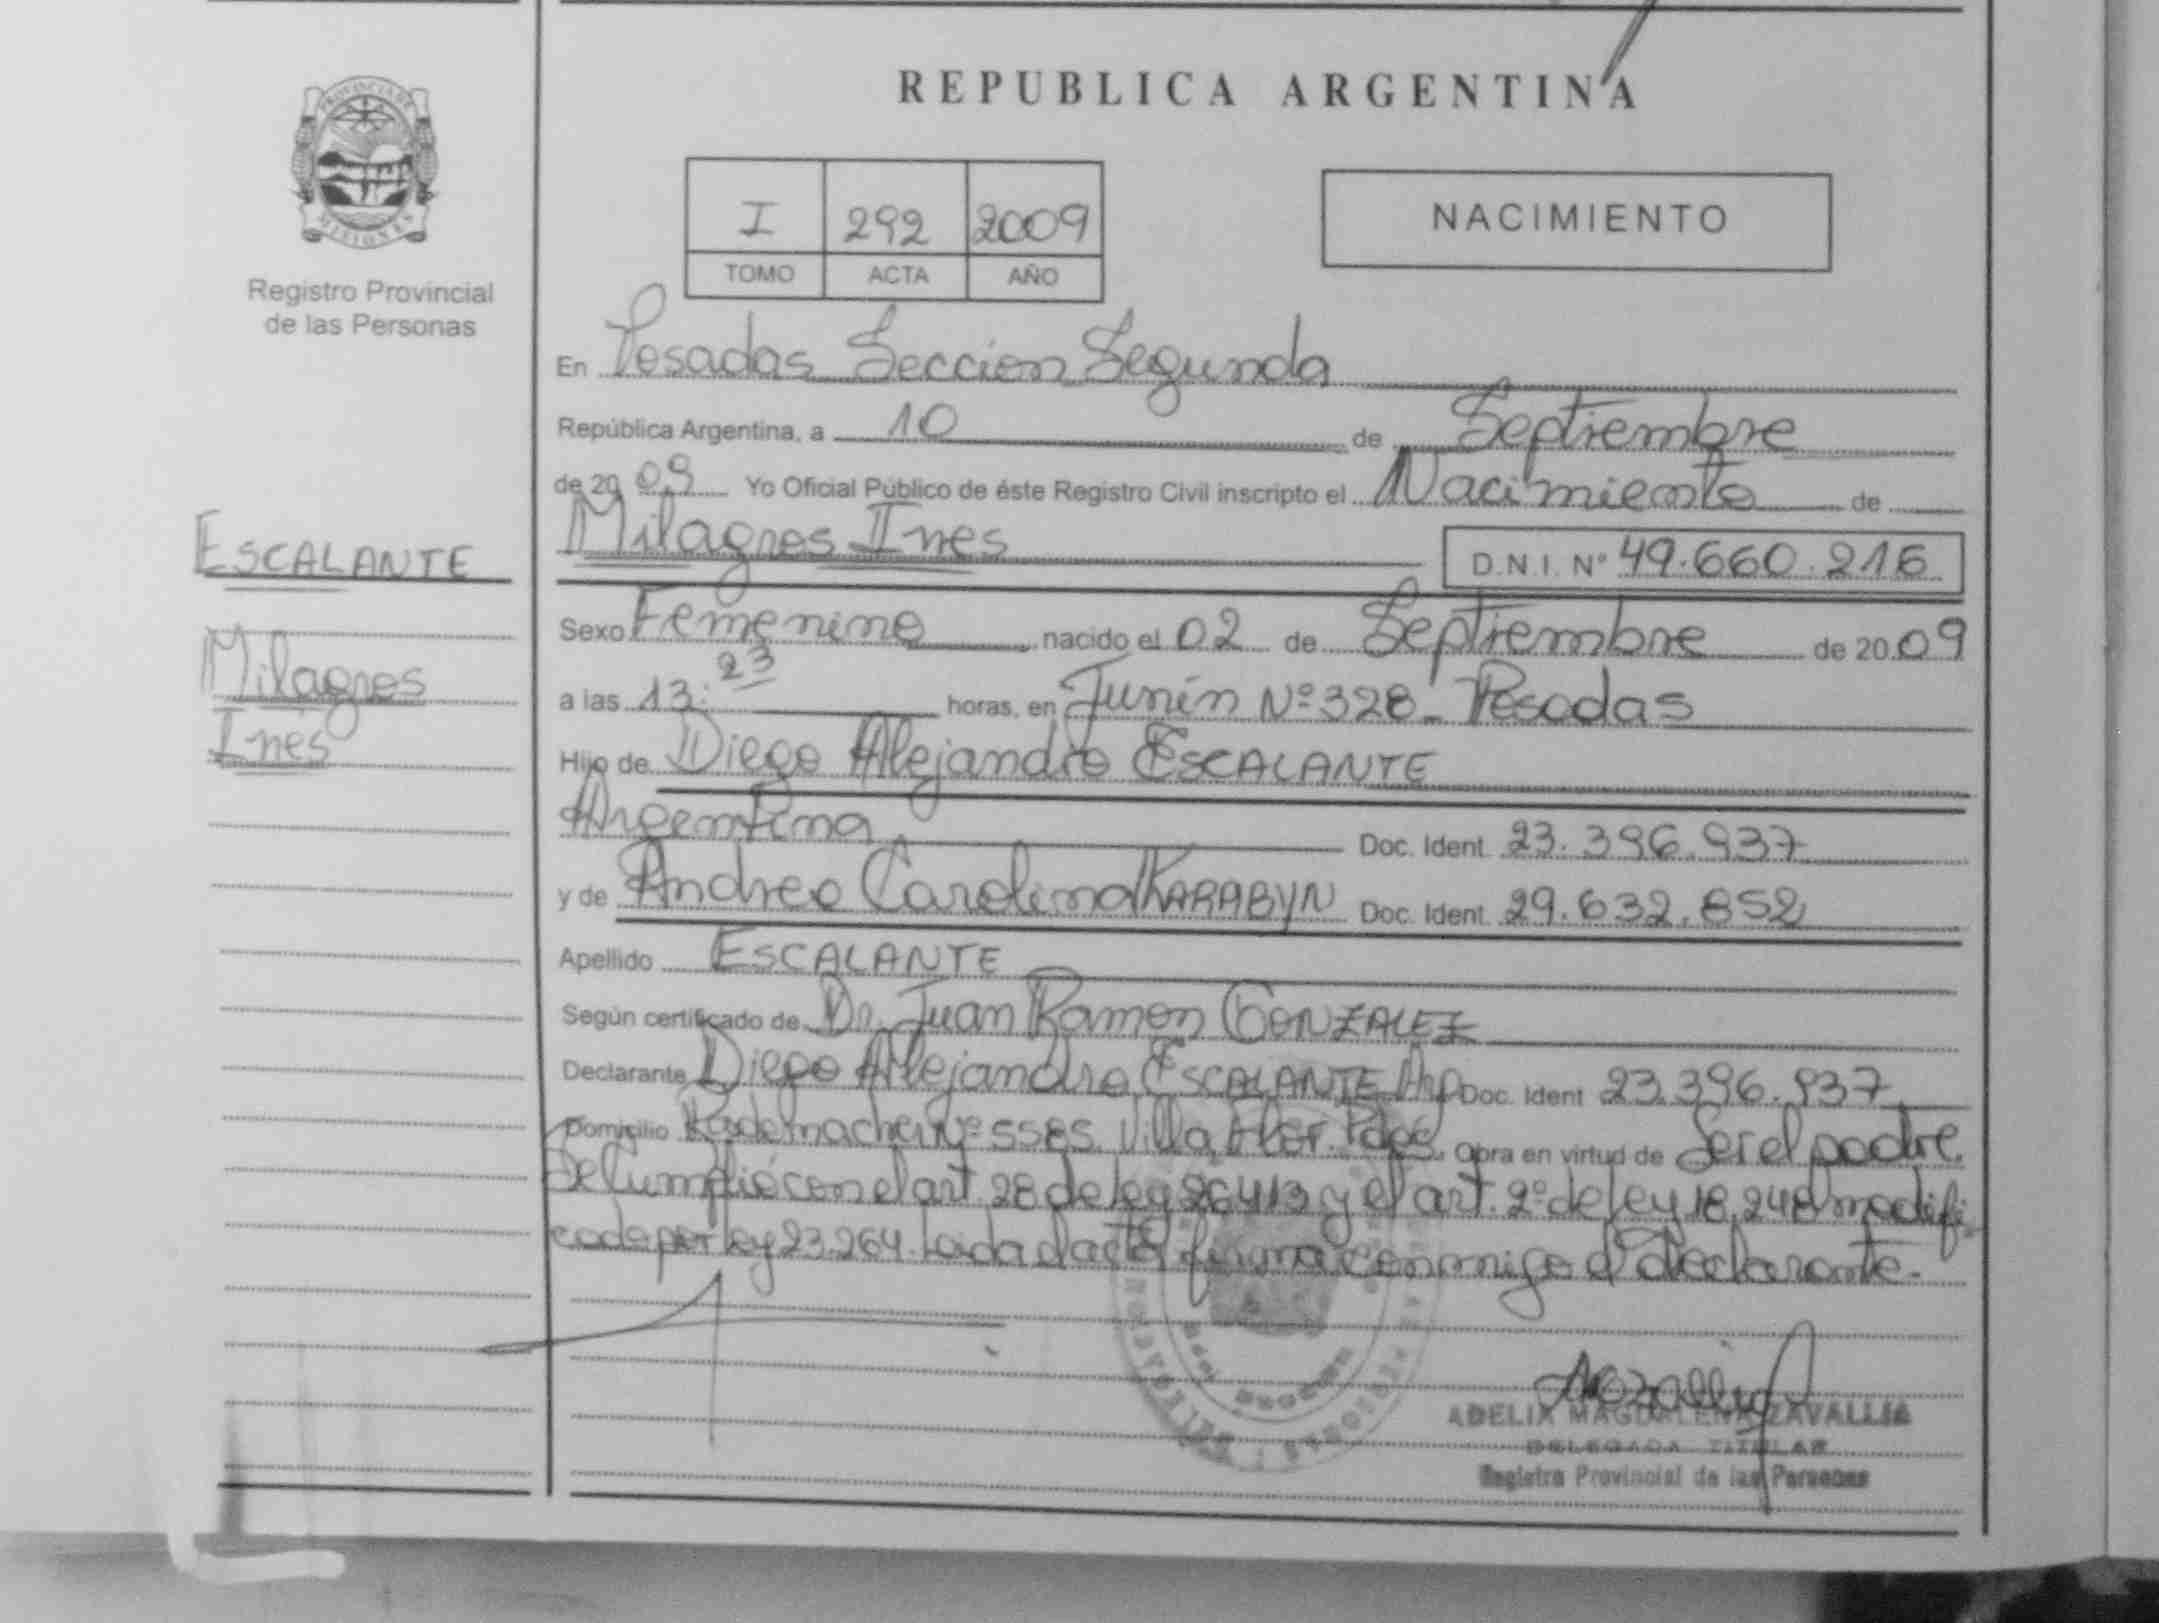 REPUBLICA ARGENTINA
PROVINCIA DE
MISIONES
Registro Provincial
de las Personas
I 292 2009
TOMO ACTA AÑO
NACIMIENTO
En Posadas Seccion Segunda
República Argentina, a 10 de Septiembre
de 2009 Yo Oficial Público de éste Registro Civil inscripto el Nacimiento de
Milagros Ines
D.N.I. Nº 49.660.216
ESCALANTE
Milagros
Inés
Sexo Femenino nacido el 02 de Septiembre de 2009
a las 13:23 horas, en Junín Nº 328 - Posadas
Hijo de Diego Alejandro ESCALANTE
Argentina Doc. Ident. 23.396.937
y de Andrea Carolina KARABYN Doc. Ident. 29.632.852
Apellido ESCALANTE
Según certificado de Dr. Juan Ramon GONZALEZ
Declarante Diego Alejandro ESCALANTE Arg Doc. Ident 23.396.937
Domicilio Rademacher Nº 5585. Villa Flor. Pdas. Obra en virtud de Ser el padre.
Se cumplió con el art. 28 de ley 26413 y el art. 2º de ley 18.248 modifi
cada por ley 23.264. Leida el acta, firma conmigo el declarante.-
ADELIA MAGDALENA ZAVALLIA
DELEGADA TITULAR
Registro Provincial de las Personas